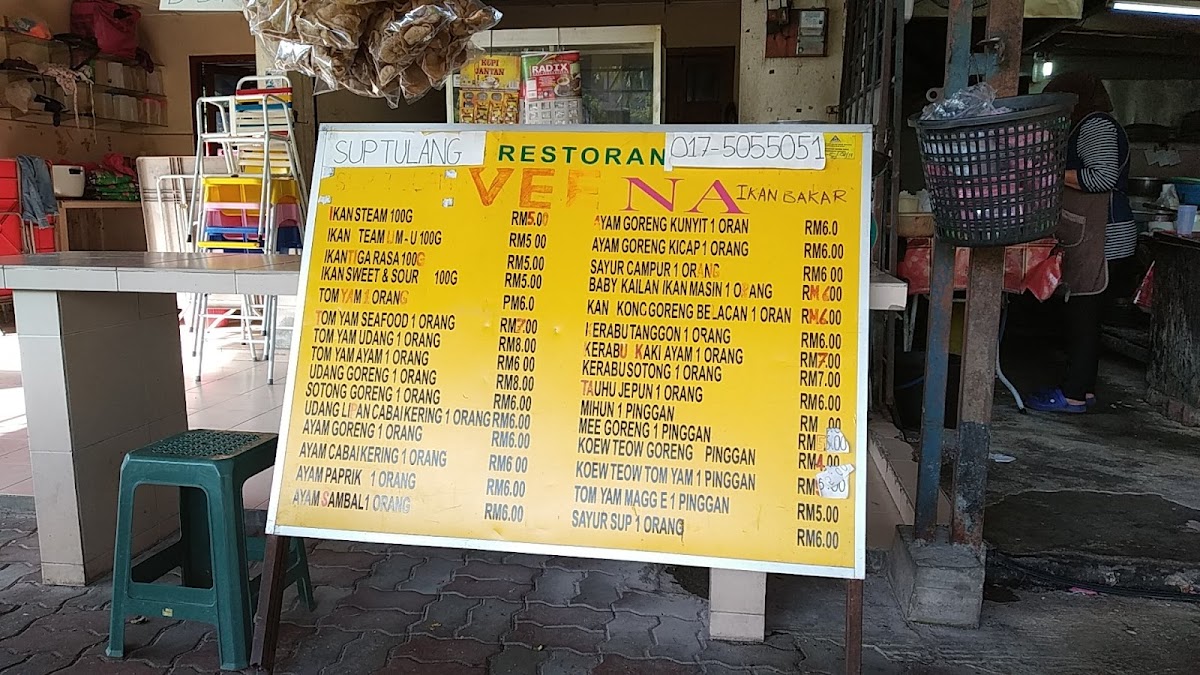 SUP TULANG
RESTORAN
017-5055051
VEE NA
IKAN BAKAR
KOPI JANTAN
RADIX
IKAN STEAM 100G RM5.00
IKAN TEAM LIM-U 100G RM5 00
IKAN TIGA RASA 100G RM5.00
IKAN SWEET & SOUR 100G RM5.00
TOM YAM 1 ORANG PM6.0
TOM YAM SEAFOOD 1 ORANG RM7.00
TOM YAM UDANG 1 ORANG RM8.00
TOM YAM AYAM 1 ORANG RM6 00
UDANG GORENG 1 ORANG RM8.00
SOTONG GORENG 1 ORANG RM6.00
UDANG LIPAN CABAI KERING 1 ORANG RM6.00
AYAM GORENG 1 ORANG RM6.00
AYAM CABAI KERING 1 ORANG RM6 00
AYAM PAPRIK 1 ORANG RM6.00
AYAM SAMBAL 1 ORANG RM6.00
AYAM GORENG KUNYIT 1 ORAN RM6.0
AYAM GORENG KICAP 1 ORANG RM6 00
SAYUR CAMPUR 1 ORANG RM6 00
BABY KAILAN IKAN MASIN 1 ORANG RM6.00
KAN KONG GORENG BELACAN 1 ORAN RM6.00
KERABU TANGGON 1 ORANG RM6.00
KERABU KAKI AYAM 1 ORANG RM7.00
KERABU SOTONG 1 ORANG RM7.00
TAUHU JEPUN 1 ORANG RM6.00
MIHUN 1 PINGGAN RM .00
MEE GORENG 1 PINGGAN RM5.00
KOEW TEOW GORENG PINGGAN RM4.00
KOEW TEOW TOM YAM 1 PINGGAN
TOM YAM MAGG E 1 PINGGAN RM5.00
SAYUR SUP 1 ORANG RM6.00